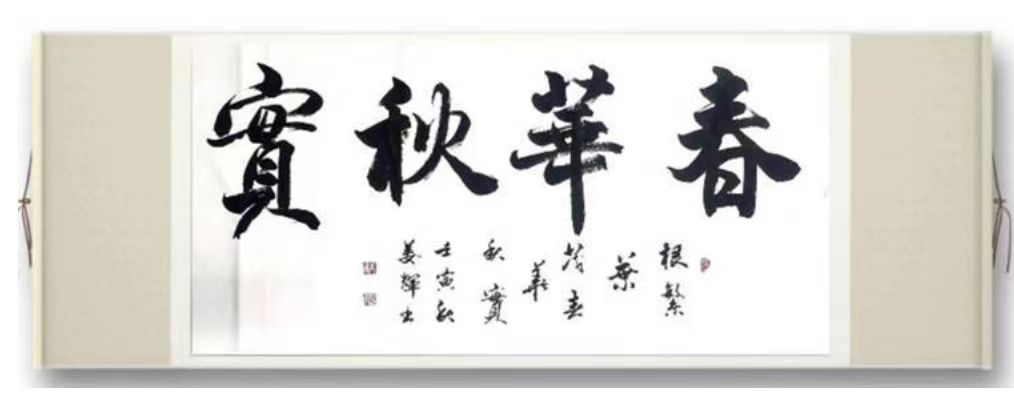 春華秋實
根繁
葉
茂春
華
秋實
壬寅秋
姜輝書